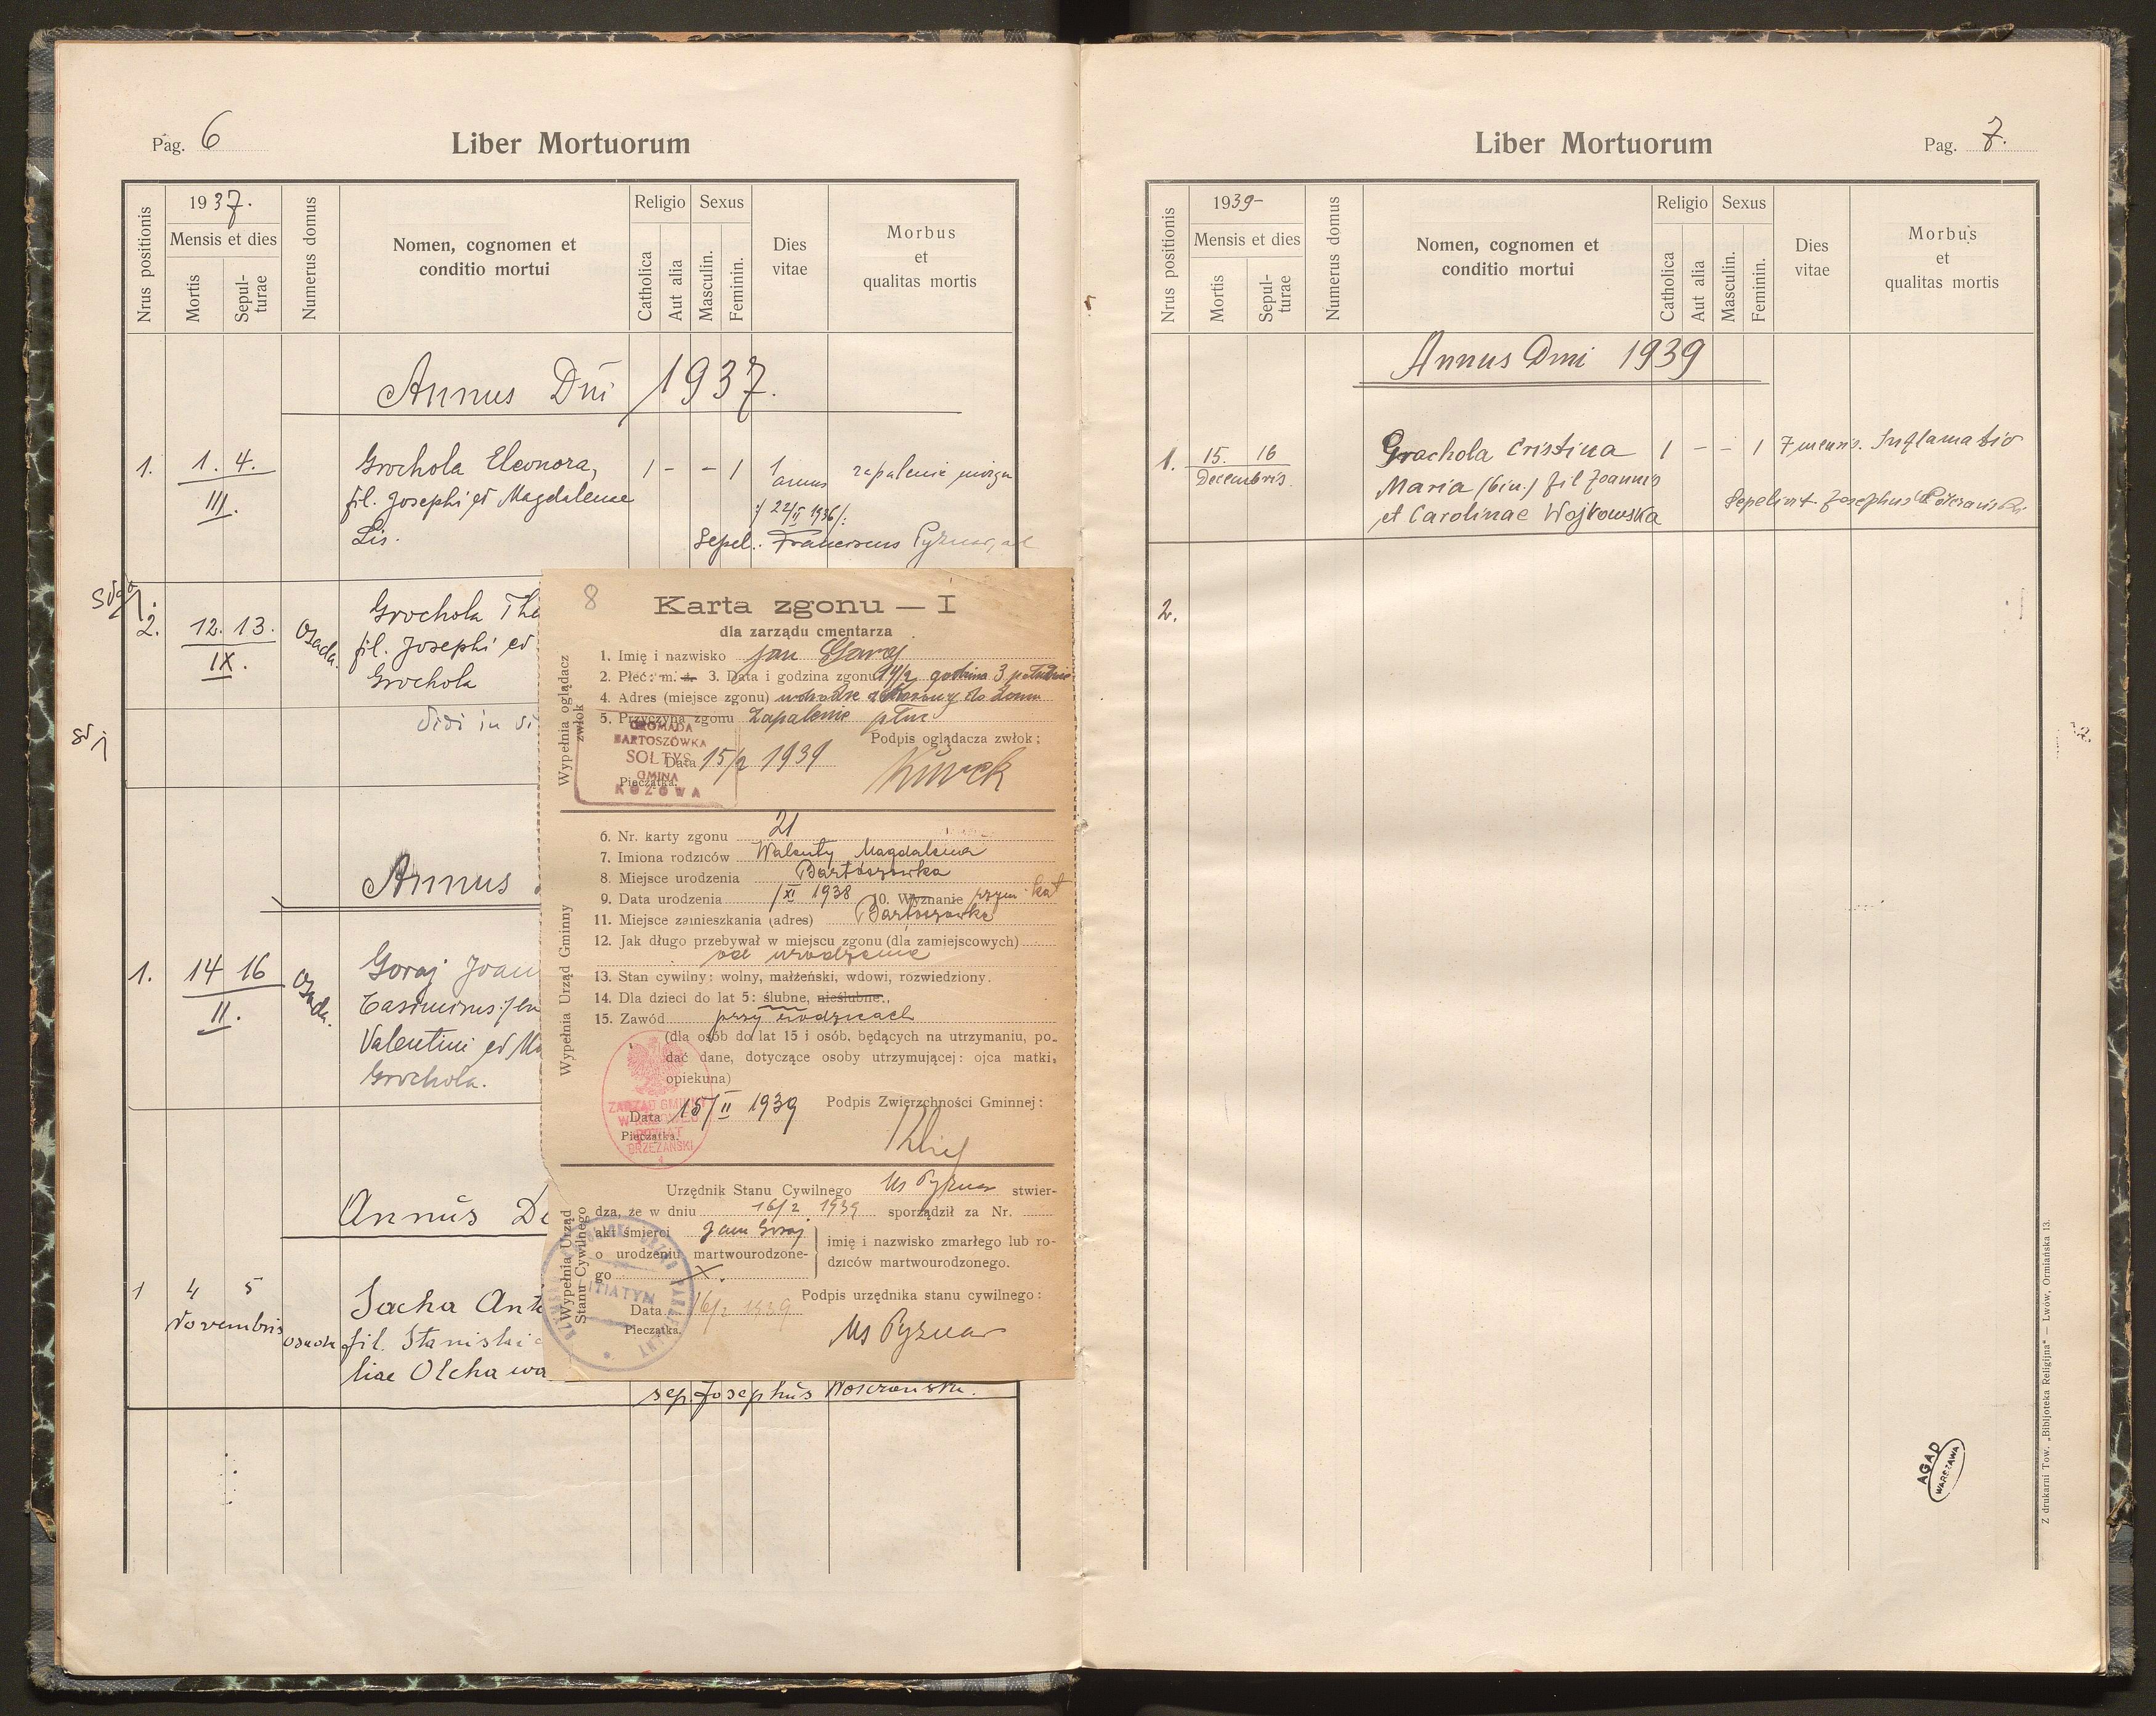 Pag. 6
Liber Mortuorum
Nrus positionis
1937.
Mensis et dies
Mortis
Sepul-
turae
Numerus domus
Nomen, cognomen et
conditio mortui
Religio
Catholica
Aut alia
Sexus
Masculin.
Feminin.
Dies
vitae
Morbus
et
qualitas mortis
Annus Dni 1937.
1. 1. 4. Grochola Eleonora, 1 - - 1 1 zapalenie mózgu
III. fil. Josephi et Magdalenae annus
Lis. Sepel. Franciscus Pyznar
2. 12. 13. Osada. Grochola
IX. fil. Josephi et
Grochola
Annus
1. 14 16 Osada. Goraj Joan
II. Casimirus
Valentini et
Grochola.
Annus
1 4 5 Sacha Ant
Novembris osada fil. Stanislai
liae Olchawa
sep. Josephus
8
Karta zgonu — I
dla zarządu cmentarza
Wypełnia oglądacz
zwłok
1. Imię i nazwisko Jan Goraj
2. Płeć: m. ż. 3. Data i godzina zgonu 14/2 godzina 3
4. Adres (miejsce zgonu) do domu
5. Przyczyna zgonu Zapalenie płuc
GROMADA
BARTOSZÓWKA
SOŁTYS
GMINA
KOZOWA
Podpis oglądacza zwłok:
Data 15/2 1939
Pieczątka.
Wypełnia Urząd Gminny
6. Nr. karty zgonu 21
7. Imiona rodziców Walenty Magdalena
8. Miejsce urodzenia Bartoszówka
9. Data urodzenia 1/XI 1938 10. Wyznanie rzym. kat
11. Miejsce zamieszkania (adres) Bartoszówka
12. Jak długo przebywał w miejscu zgonu (dla zamiejscowych)
od urodzenia
13. Stan cywilny: wolny, małżeński, wdowi, rozwiedziony.
14. Dla dzieci do lat 5: ślubne, nieślubne.
15. Zawód przy rodzicach
(dla osób do lat 15 i osób, będących na utrzymaniu, po-
dać dane, dotyczące osoby utrzymującej: ojca matki,
opiekuna)
ZARZĄD GMINY
POWIAT
BRZEŻAŃSKI
Data 15/II 1939 Podpis Zwierzchności Gminnej:
Pieczątka.
Wypełnia Urząd
Stanu Cywilnego
Urzędnik Stanu Cywilnego Pyznar stwier-
dza, że w dniu 16/2 1939 sporządził za Nr.
akt śmierci Jan Goraj
o urodzeniu martwourodzone-
go x.
imię i nazwisko zmarłego lub ro-
dziców martwourodzonego.
Podpis urzędnika stanu cywilnego:
Data 16/2 1939
Pieczątka.
Pyznar
Liber Mortuorum
Pag. 7.
Nrus positionis
1939-
Mensis et dies
Mortis
Sepul-
turae
Numerus domus
Nomen, cognomen et
conditio mortui
Religio
Catholica
Aut alia
Sexus
Masculin.
Feminin.
Dies
vitae
Morbus
et
qualitas mortis
Annus Dmi 1939
1. 15. 16 Grachola Cristina 1 - - 1 7 mensis. Inflamatio
Decembris. Maria (bin.) fil Joannis
et Carolinae Wojkowska
Sepelivit Josephus
2.
Z drukarni Tow. „Bibljoteka Religijna" — Lwów, Ormiańska 13.
AGAD
WARSZAWA